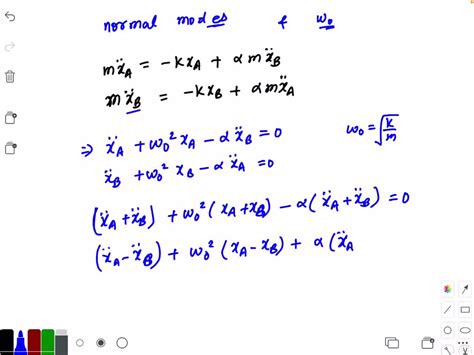 normal modes & ω₀
mẍ_A = -kx_A + αmẍ_B
mẍ_B = -kx_B + αmẍ_A
⇒ ẍ_A + ω₀² x_A - αẍ_B = 0 ω₀ = √(k/m)
ẍ_B + ω₀² x_B - αẍ_A = 0
(ẍ_A + ẍ_B) + ω₀² (x_A + x_B) - α(ẍ_A + ẍ_B) = 0
(ẍ_A - ẍ_B) + ω₀² (x_A - x_B) + α(ẍ_A